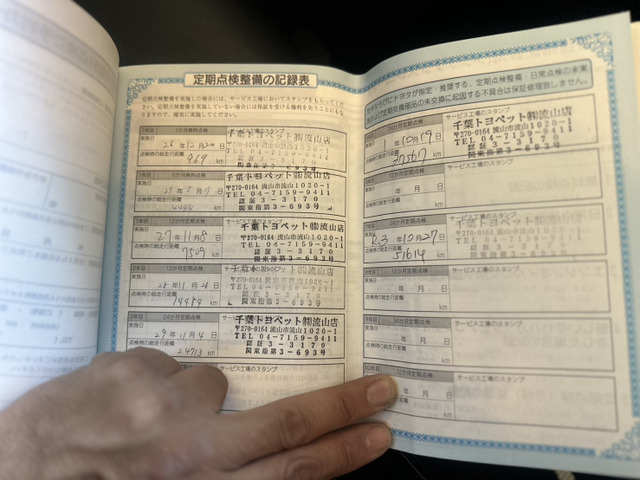 定期点検整備の記録表
定期点検整備を実施した場合には、サービス工場においてスタンプをもらってください。
定期点検整備を実施していない場合には保証を受ける権利を失うことにもなりますので、確実に実施してください。
1か月無料点検
実施日
26年12月20日
点検時の総走行距離
969 km
千葉トヨペット㈱流山店
6か月無料点検
実施日
点検時の総走行距離
km
千葉トヨペット㈱流山店
〒270-0164 流山市流山1020-1
TEL 04-7159-9411
認証3-3170
関東指第3-693号
12か月定期点検
サービス工場のスタンプ
実施日
27年11月8日
点検時の総走行距離
7509 km
千葉トヨペット㈱流山店
〒270-0164 流山市流山1020-1
TEL 04-7159-9411
認証3-3170
関東指第3-693号
2年目 12か月定期点検
実施日
点検時の総走行距離
km
〒270-0164 流山市流山1020-1
TEL 04-7159-9411
認証3-3170
関東指第3-693号
3年目 24か月定期点検
サービス工場のスタンプ
実施日
29年11月4日
点検時の総走行距離
24713 km
千葉トヨペット㈱流山店
〒270-0164 流山市流山1020-1
TEL 04-7159-9411
認証3-3170
関東指第3-693号
12か月定期点検
サービス工場のスタンプ
トヨタが指定・推奨する、定期点検整備・日常点検の未実
定期交換部品の未交換に起因する不具合は保証修理致しません。
サービス工場のスタンプ
1年10月19日
点検時の総走行距離
37567 km
千葉トヨペット㈱流山店
〒270-0164 流山市流山1020-1
TEL 04-7159-9411
認証3-3170
関東指第3-693号
12か月定期点検
サービス工場のスタンプ
実施日
年 月 日
点検時の総走行距離
km
24か月定期点検
サービス工場のスタンプ
実施日
R3年10月27日
点検時の総走行距離
51614 km
千葉トヨペット㈱流山店
〒270-0164 流山市流山1020-1
TEL 04-7159-9411
認証3-3170
関東指第3-693号
12か月定期点検
サービス工場のスタンプ
実施日
年 月 日
点検時の総走行距離
km
24か月定期点検
サービス工場のスタンプ
実施日
年 月 日
点検時の総走行距離
km
12か月定期点検
サービス工場のスタンプ
年 月 日
km